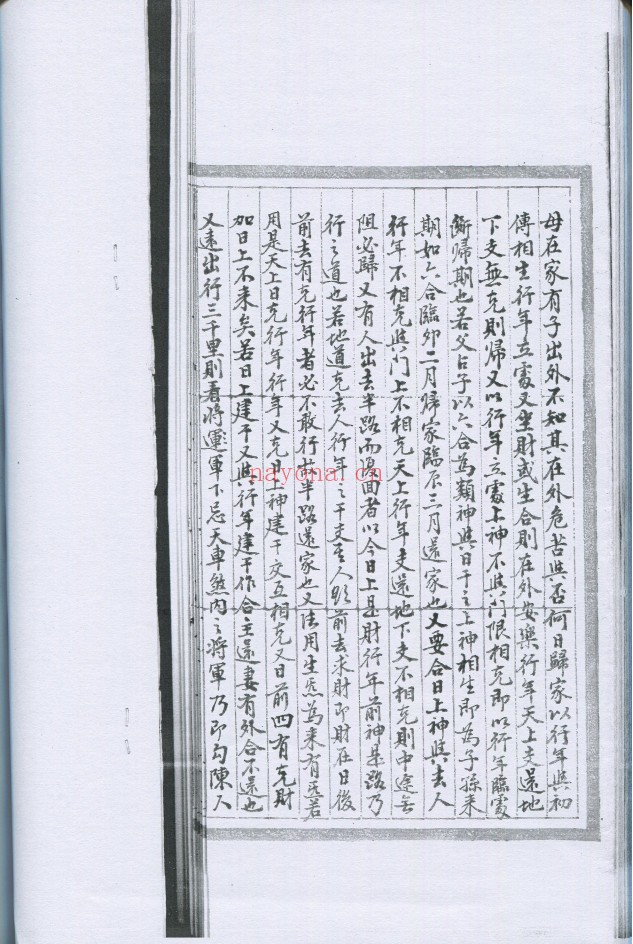 母在家有子出外不知其在外危苦與否何日歸家以行年與初
傳相生行年立處又坐財或生合則在外安樂行年天上支還地
下支無克則歸又以行年立處上神不與門限相克即以行年臨處
斷歸期也若父占子以六合為類神與日干之上神相生即為子孫來
期如六合臨卯二月歸家臨辰三月還家也又要合日上神與去人
行年不相克與門上不相克天上行年支還地下支不相克則中途無
阻必歸又有人出去半路而回者以今日上是財行年前神是路乃
行之道也若地道克去人行年之干支其人前去求財即財在日後
前去有克行年者必不敢行半路還家也又法用生炁為來有炁若
用是天上日克行年行年又克日上神建干交互相克又日前四有克財
加日上不來矣若日上建干又與行年建干作合主還妻有外合不還也
又遠出行三千里則看將運軍下忌天車煞內之將軍乃即勾陳人
nayona.cn